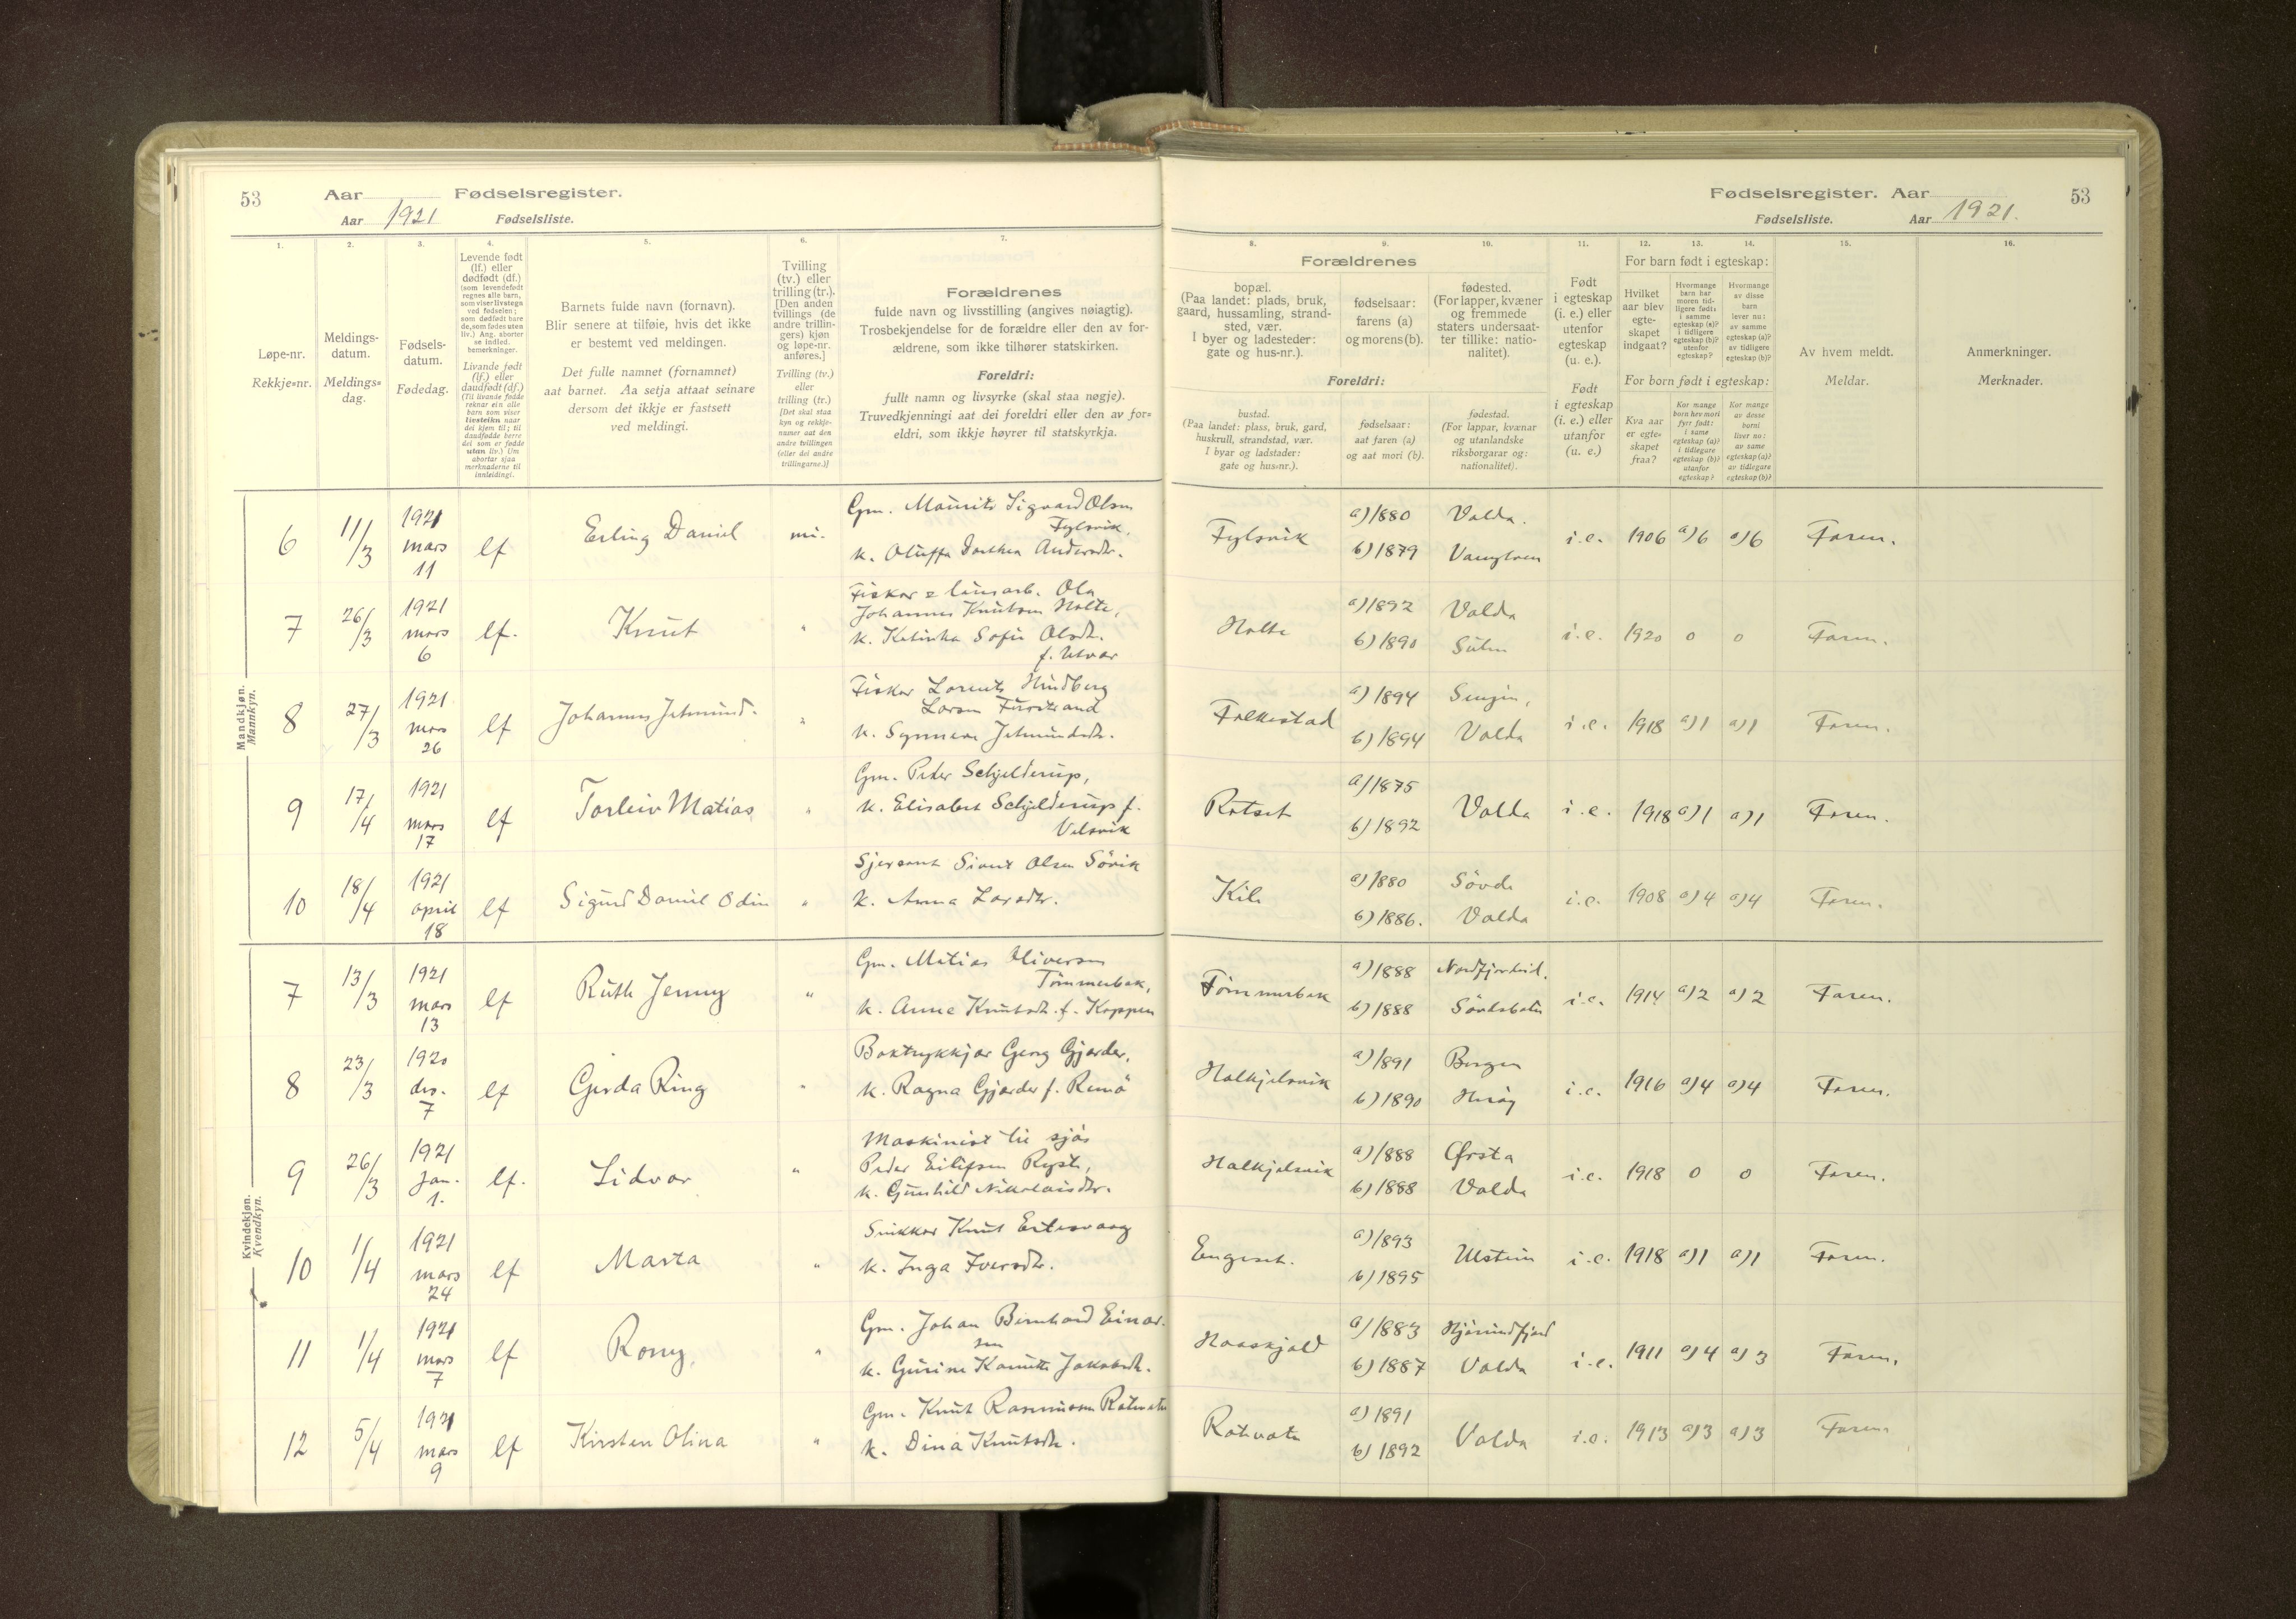 53
Aar
Fødselsregister.
Aar 1921
Fødselsliste.
1.
2.
3.
4.
5.
6.
7.
Løpe-nr.
Rekkje-nr.
Meldings-
datum.
Meldings-
dag.
Fødsels-
datum.
Fødedag.
Levende født
(lf.) eller
dødfødt (df.)
(som levendefødt
regnes alle barn,
som viser livstegn
ved fødselen;
som dødfødt bare
de, som fødes uten
liv.) Ang. aborter
se indled.
bemerkninger.
Livande født
(lf.) eller
daudfødt (df.)
(Til livande fødde
reknar ein alle
barn som viser
livsteikn naar
dei kjem til; til
daudfødde berre
dei som er fødde
utan liv.) Um
abortar sjaa
merknaderne til
innleidingi.
Barnets fulde navn (fornavn).
Blir senere at tilføie, hvis det ikke
er bestemt ved meldingen.
Det fulle namnet (fornamnet)
aat barnet. Aa setja attaat seinare
dersom det ikkje er fastsett
ved meldingi.
Tvilling
(tv.) eller
trilling (tr.).
[Den anden
tvillings (de
andre trillin-
gers) kjøn
og løpe-nr.
anføres.]
Tvilling (tv.)
eller
trilling (tr.)
[Det skal staa
kyn og rekkje-
numer aat den
andre tvillingen
(eller dei andre
trillingarne.)]
Forældrenes
fulde navn og livsstilling (angives nøiagtig).
Trosbekjendelse for de forældre eller den av for-
ældrene, som ikke tilhører statskirken.
Foreldri:
fullt namn og livsyrke (skal staa nøgje).
Truvedkjenningi aat dei foreldri eller den av for-
eldri, som ikkje høyrer til statskyrkja.
Mandkjøn.
Mannkyn.
6
11/3
1921
mars
11
lf
Erling Daniel
Gm. Maurits Sigvard Olsen
Fylsvik,
k. Oluffa Dorthea Andersdtr.
7
26/3
1921
mars
6
lf.
Knut
"
Fiskar & lausarb. Ola
Johannes Knutsen Holte,
k. Katinka Sofie Olsdtr.
f. Utvær
8
27/3
1921
mars
26
lf
Johannes Jetmund.
"
Fiskar Lorents Hindberg
Larsen Furstrand
k. Synnøve Jetmundsdtr.
9
17/4
1921
mars
17
lf
Torleiv Matias
"
Gm. Peder Schjelderup,
k. Elisabet Schjelderup f.
Velsvik
10
18/4
1921
april
18
lf
Sigurd Daniel Odin
"
Sjersant Sivert Olsen Sörik
k. Anna Larsdtr.
Kvindekjøn.
Kvendkyn.
7
13/3
1921
mars
13
lf
Ruth Jenny
"
Gm. Matias Oliversen
Tømmerbak,
k. Anne Knutsdtr. f. Koppen
8
23/3
1920
des.
7
lf
Gerda Ring
"
Boktrykkjar Georg Gjærder,
k. Ragna Gjærder f. Remö
9
26/3
1921
Jan.
1.
lf.
Lidvar
"
Maskinist til sjös
Peder Eilifsen Ryste,
k. Gunhild Nikolaisdtr.
10
1/4
1921
mars
24
lf
Marta
"
Snikkar Knut Eitesvaag
k. Inga Iversdtr.
11
1/4
1921
mars
7
lf
Rony
"
Gm. Johan Bernhard Einar-
sen
k. Gurine Kamitte Jakobsdtr.
12
5/4
1921
mars
9
lf
Kirsten Olina
"
Gm. Knut Rasmussen Rotevatn
k. Dina Knutsdtr.
Fødselsregister. Aar
53
Fødselsliste.
Aar 1921.
8.
9.
10.
11.
12.
13.
14.
15.
16.
Forældrenes
bopæl.
(Paa landet: plads, bruk,
gaard, hussamling, strand-
sted, vær.
I byer og ladesteder:
gate og hus-nr.).
fødselsaar:
farens (a)
og morens (b).
fødested.
(For lapper, kvæner
og fremmede
staters undersaat-
ter tillike: natio-
nalitet).
Foreldri:
bustad.
(Paa landet: plass, bruk, gard,
huskrull, strandstad, vær.
I byar og ladstader:
gate og hus-nr.).
fødselsaar:
aat faren (a)
og aat mori (b).
fødestad.
(For lappar, kvænar
og utanlandske
riksborgarar og:
nationalitet).
Født
i egteskap
(i. e.) eller
utenfor
egteskap
(u. e.).
Født
i egteskap
(i. e.) eller
utanfor
(u. e.)
For barn født i egteskap:
Hvilket
aar blev
egte-
skapet
indgaat?
Hvormange
barn har
moren tid-
ligere født:
i samme
egteskap (a)?
i tidligere
egteskap (b)?
utenfor
egteskap?
Hvormange
av disse
barn
lever nu:
av samme
egteskap (a)?
av tidligere
egteskap (b)?
For born født i egteskap:
Kva aar
er egte-
skapet
fraa?
Kor mange
born hev mori
fyrr født:
i same
egteskap (a)?
i tidlegare
egteskap (b)?
utanfor
egteskap?
Kor mange
av desse
borni
liver no:
av same
egteskap (a)?
av tidlegare
egteskap (b)?
Av hvem meldt.
Meldar.
Anmerkninger.
Merknader.
Fylsvik
a) 1880
b) 1879
Volda.
Vanylven
i.e.
1906
a) 6
a) 6
Faren.
Holte
a) 1892
b) 1890
Volda
i.e.
1920
0
0
Faren.
Folkestad
a) 1894
b) 1894
Senjen,
Volda
i.e.
1918
a) 1
a) 1
Faren.
Rotset
a) 1875
b) 1892
Volda
i.e.
1918
a) 1
a) 1
Faren.
Kile
a) 1880
b) 1886.
Sövde
Volda
i.e.
1908
a) 4
a) 4
Faren.
Tømmerbak
a) 1888
b) 1888
Nordfjordeid.
i.e.
1914
a) 2
a) 2
Faren.
Halkjelsvik
a) 1891
b) 1890
Bergen
Heröy
i.e.
1916
a) 4
a) 4
Faren.
Halkjelsvik
a) 1888
b) 1888
Ørsta
Volda
i.e.
1918
0
0
Faren.
Engeset.
a) 1893
b) 1895
Ulstein
i.e.
1918
a) 1
a) 1
Faren.
Haaskjold
a) 1883
b) 1887
Hjörundfjord
Volda
i.e.
1911
a) 4
a) 3
Faren.
Rotevatn
a) 1891
b) 1892
Volda
i.e.
1913
a) 3
a) 3
Faren.